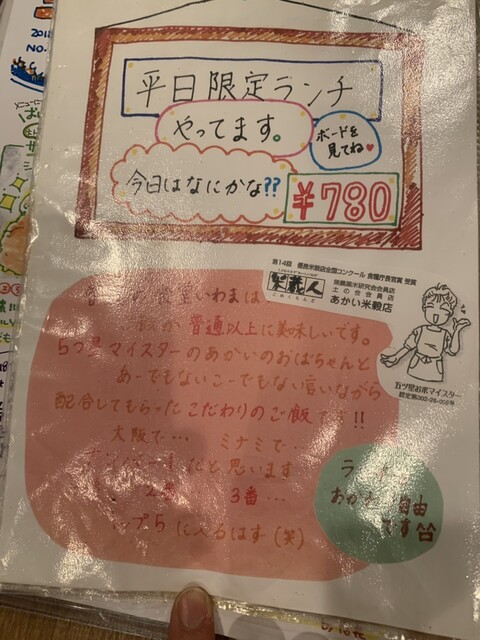 平日限定ランチ
やってます。
ボードを
見てね
今日はなにかな??
¥780
第14回 優良米穀店全国コンクール 食糧庁長官賞 受賞
米蔵人
土の会会員店
あかい米穀店
五ツ星お米マイスター
食堂いわまは
ご飯が普通以上に美味しいです。
5つ星マイスターのあかいのおばちゃんと
あーでもないこーでもない言いながら
配合してもらったこだわりのご飯です!!
大阪で… ミナミで…
ナンバー1だと思います
2番 3番…
トップ5に入るはず(笑)
自由
です
2018
NO.